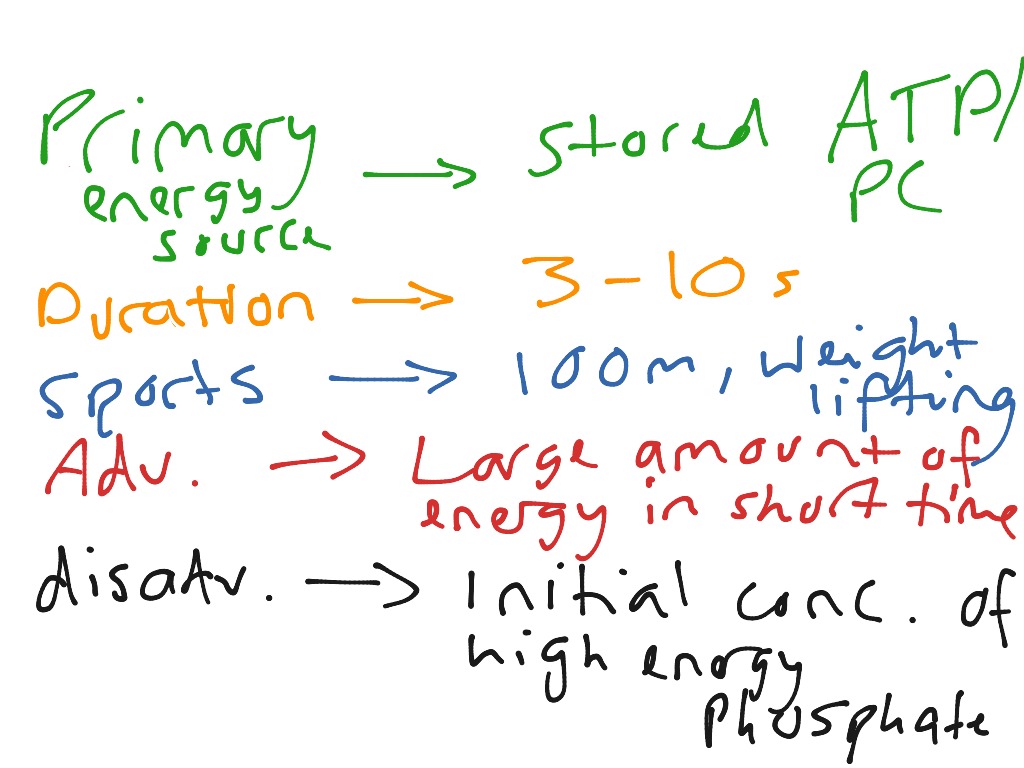 Primary → stored ATP/
energy PC
source
Duration → 3-10 s
Sports → 100m, weight
lifting
Adv. → Large amount of
energy in short time
disadv. → Initial conc. of
high energy
phosphate